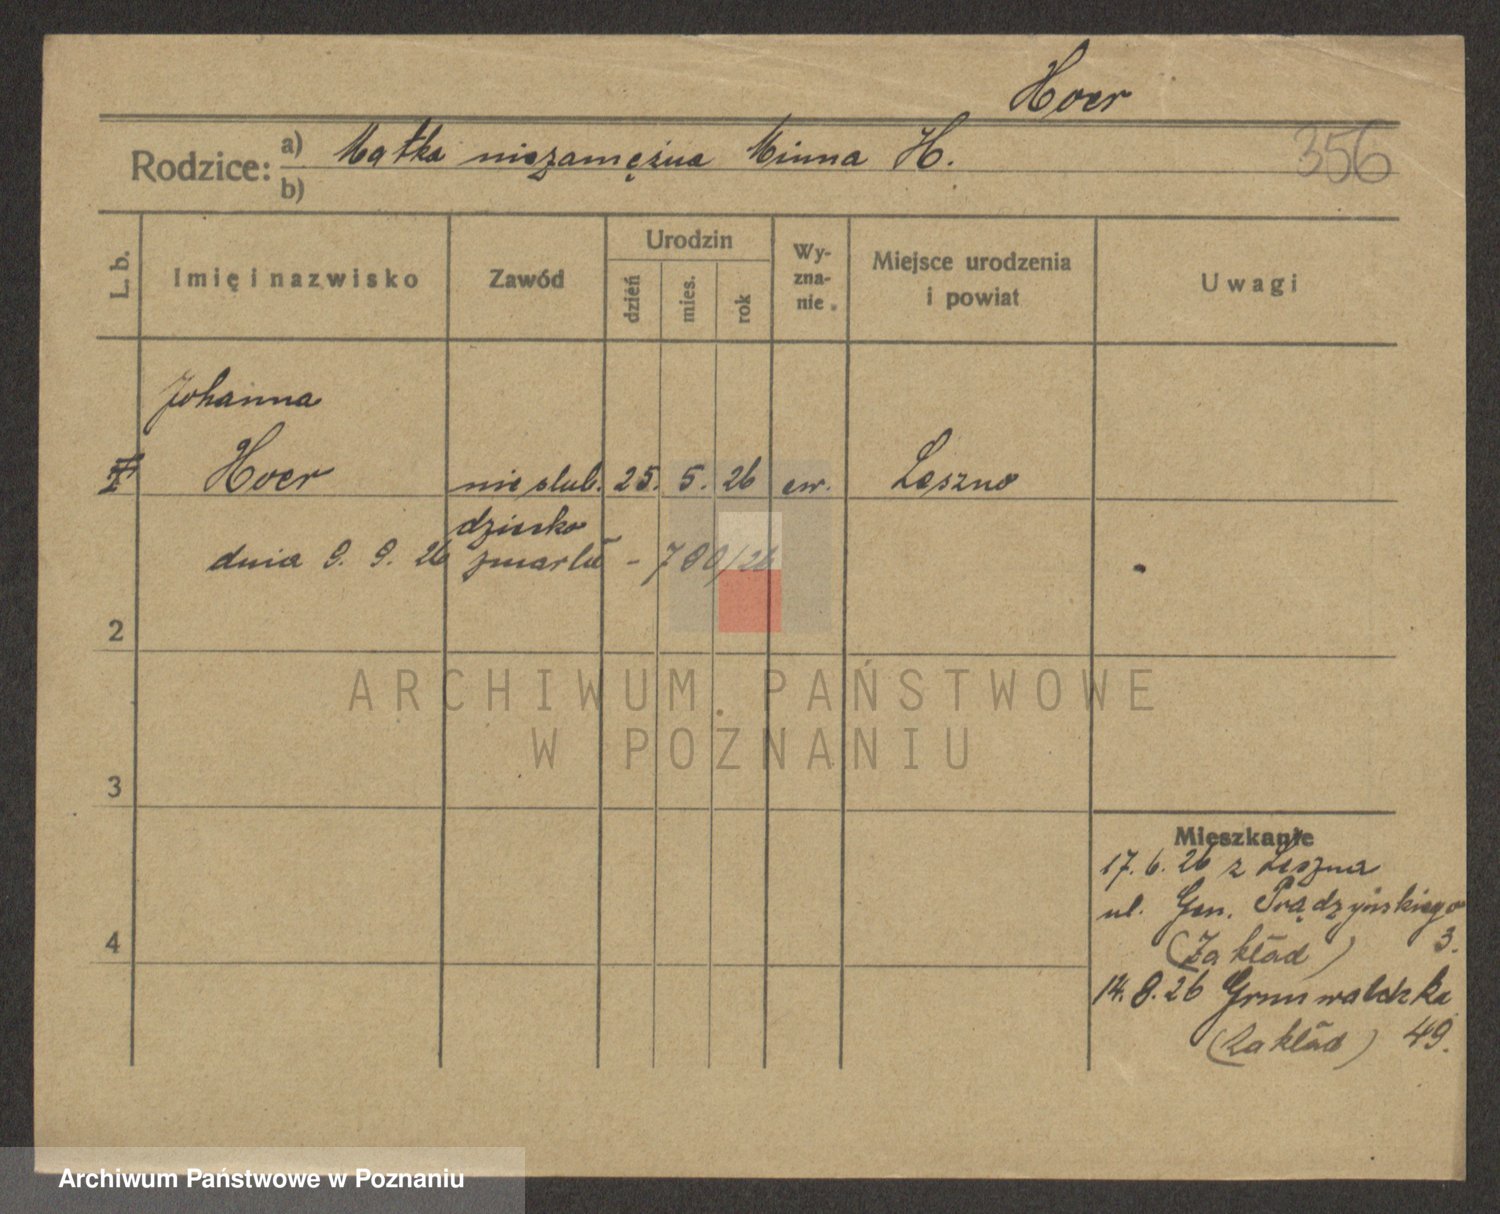 Hoer
356
Rodzice: a) Matka niezamężna Minna H.
b)
L. b.
Imię i nazwisko
Zawód
Urodzin
dzień
mies.
rok
Wy-
zna-
nie.
Miejsce urodzenia
i powiat
Uwagi
Johanna
1 Hoer nieślub. 25. 5. 26 ew. Leszno
dziecko
dnia 9. 9. 26 zmarła - 790/26
2
ARCHIWUM PAŃSTWOWE
W POZNANIU
3
Mieszkanie
17. 6. 26 z Leszna
ul. Gen. Prądzyńskiego
4
(Zakład) 3.
14. 8. 26 Grunwaldzka
(Zakład) 49.
Archiwum Państwowe w Poznaniu